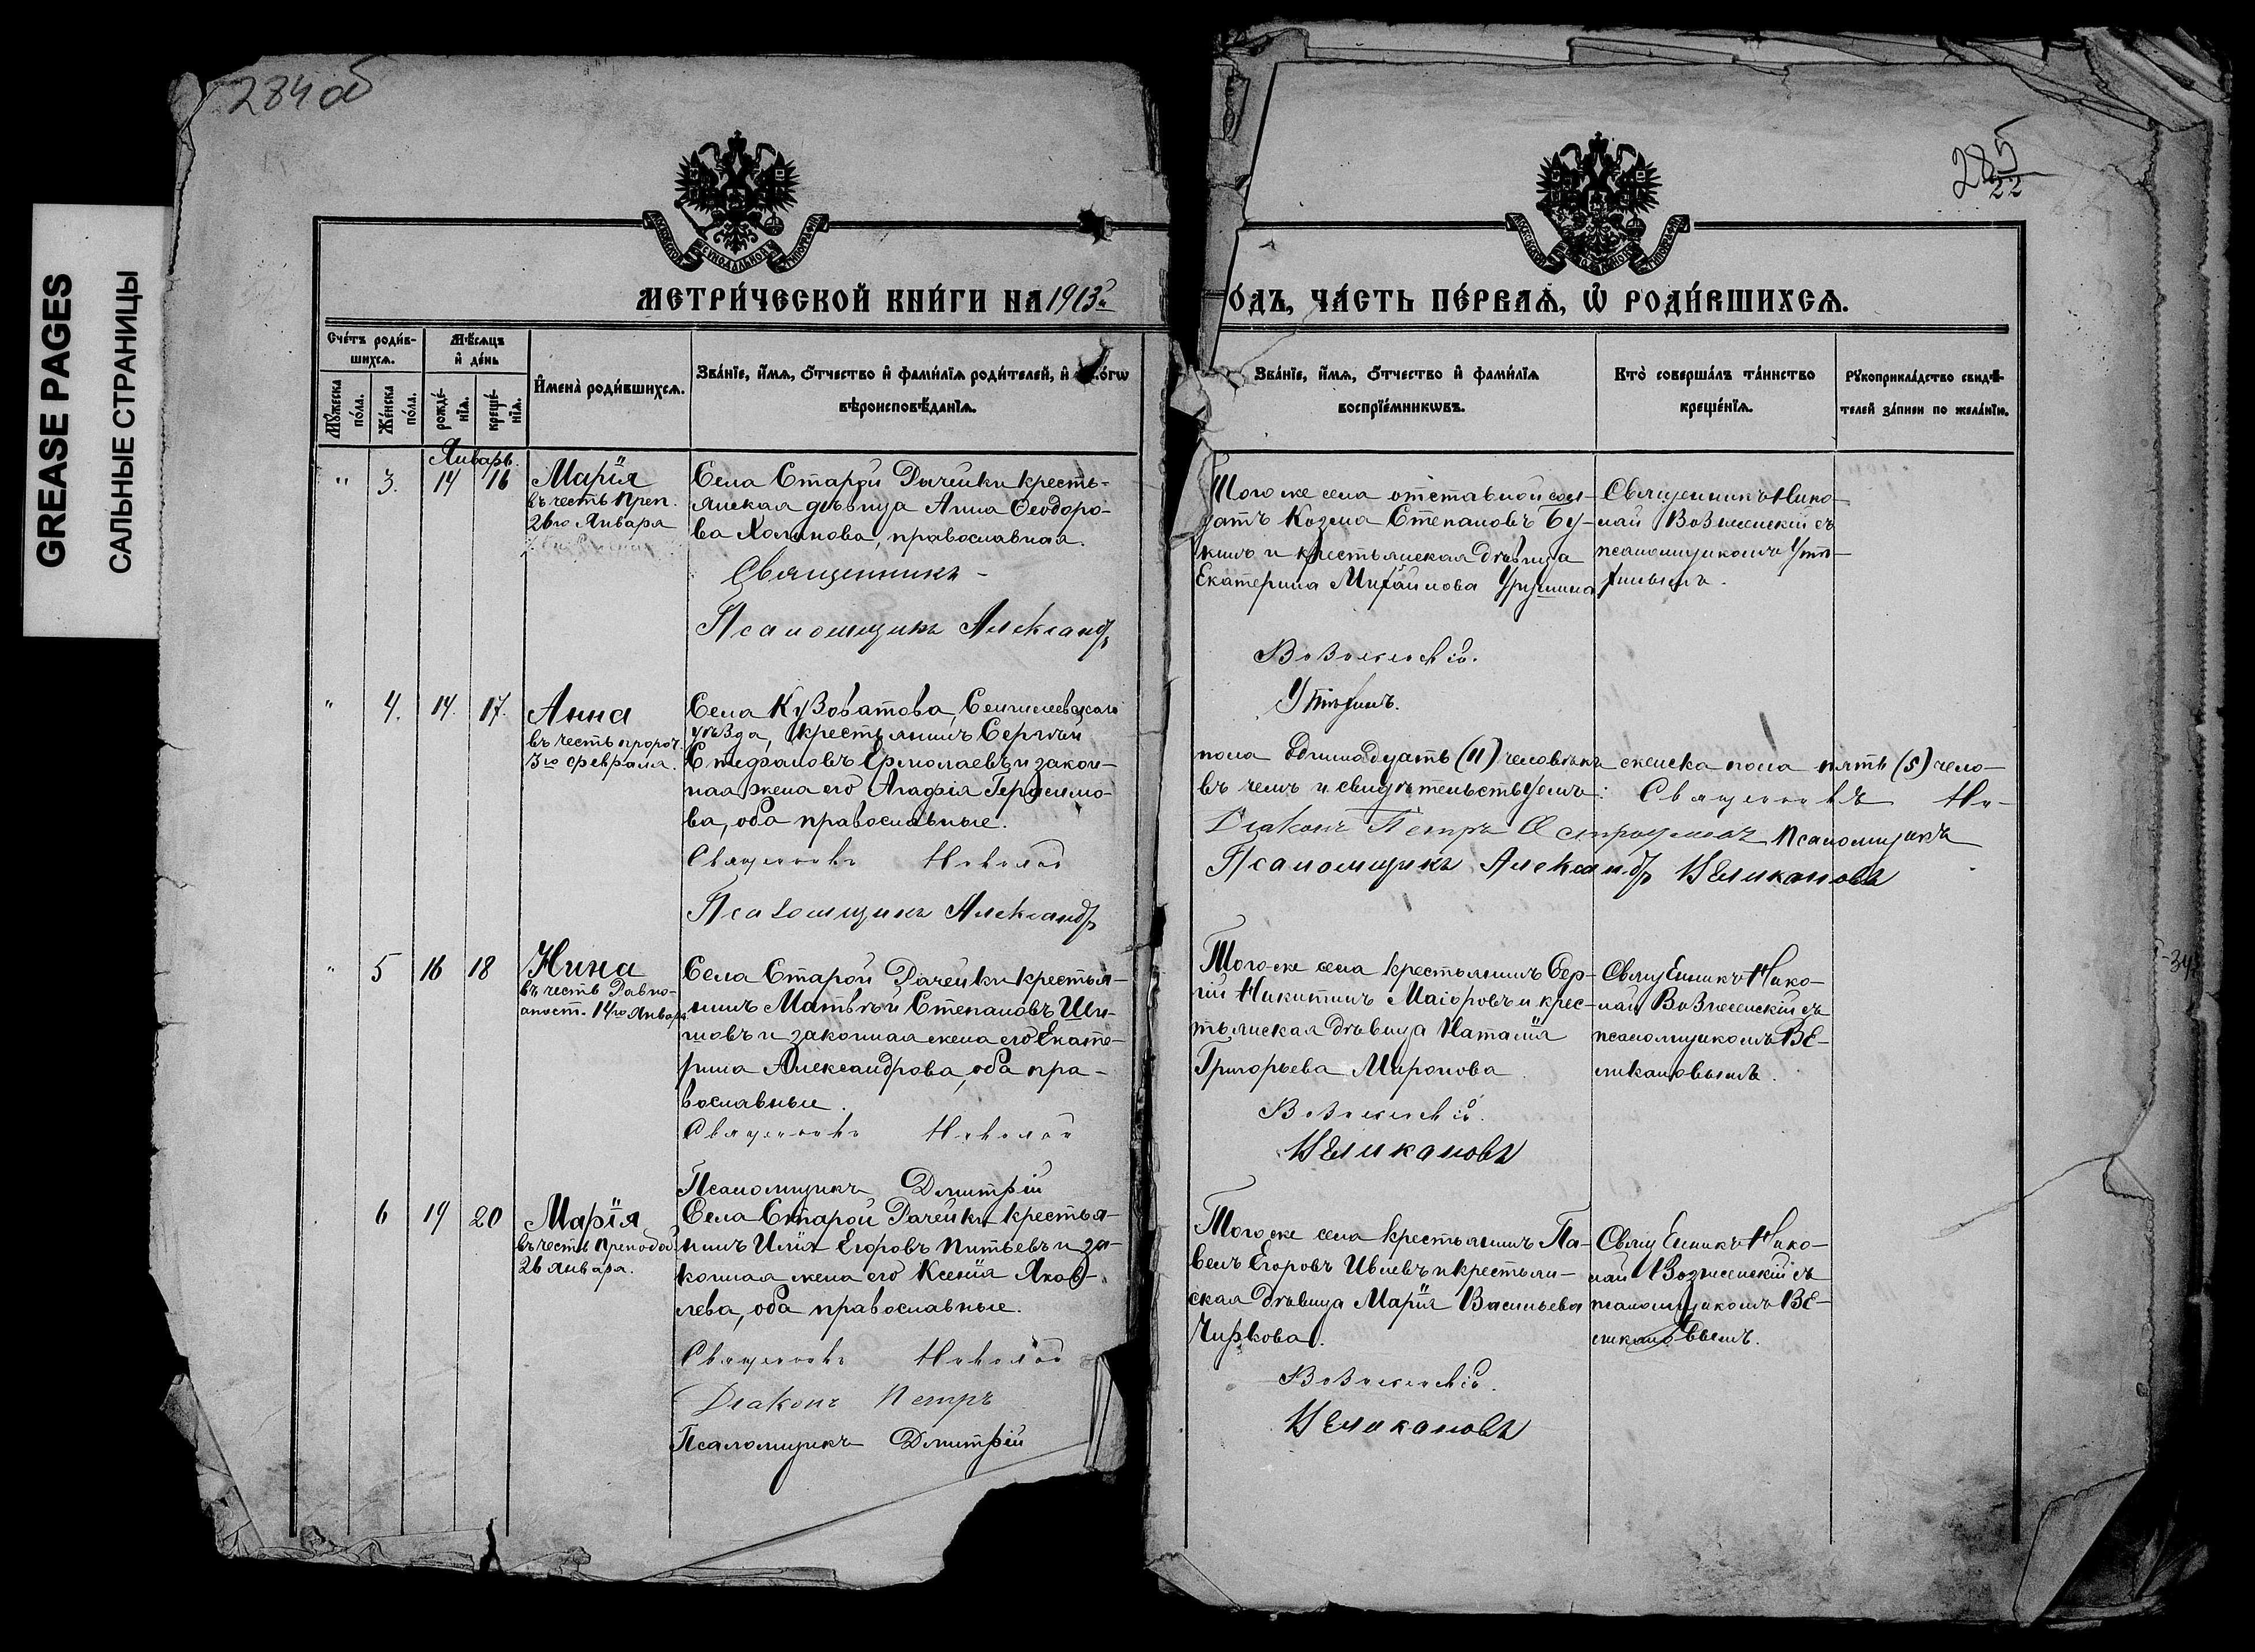 284 об
285
22
GREASE PAGES
САЛЬНЫЕ СТРАНИЦЫ
МЕТРИ́ЧЕСКОЙ КНИ́ГИ НА 1913й
О́ДЪ, ЧА́СТЬ ПЕ́РВАЯ, Ѡ РОДИ́ВШИХСЯ.
Сче́тъ роди́в-
шихся.
Мѣ́сяцъ
и де́нь
Мꙋжеска
по́ла.
Же́нска
по́ла.
рожде́-
нїя.
креще́-
нїя.
Имена̀ роди́вшихся.
Зва́нїе, и́мя, о́тчество и фами́лїя роди́телей, и
вѣроисповѣ́данїя.
Зва́нїе, и́мя, о́тчество и фами́лїя
воспрїе́мникѡвъ.
Кто̀ соверша́лъ та́инство
креще́нїя.
Рꙋкоприкла́дство свидѣ́-
телей за́писи по жела́нїю.
Январь.
" 3. 14 16 Марія
въ честь Преп.
26го Января
Села Старой Рачейки кресть-
янская дѣвица Анна Ѳеодоро-
ва Холинова, православная.
Священникъ
Псаломщикъ Александръ
Того же села отставной сол-
датъ Козма Степановъ Бу-
кинъ и крестьянская дѣвица
Екатерина Михайлова
Священникъ Нико-
лай Вознесенскій съ
псаломщикомъ Утѣ-
хинымъ.
Вознесенскій.
Утѣхинъ.
" 4. 14. 17. Анна
въ честь пророч.
3го февраля.
Села Кузоватова, Сенгилеевскаго
уѣзда, крестьянинъ Сергѣй
Стефановъ Ермолаевъ и закон-
ная жена его Агафія Герасимо-
ва, оба православные.
Священникъ Николай
Псаломщикъ Александръ
пола одинадцать (11) человѣкъ женска пола пять (5) чело-
вѣчемъ и свидѣтельствуемъ: Священникъ Ни-
Діаконъ Петръ Остроумовъ Псаломщикъ
Псаломщикъ Александръ Великановъ
" 5 16 18 Нина
въ честь Равно-
апост. 14го Января
Села Старой Рачейки крестья-
нинъ Матвѣй Степановъ Ши-
шовъ и законная жена его Екате-
рина Александрова, оба пра-
вославные.
Священникъ Николай
Псаломщикъ Димитрій
Того же села крестьянинъ Сер-
гій Никитинъ Маіоровъ и крес-
тьянская дѣвица Наталія
Григорьева Миронова
Священникъ Нико-
лай Вознесенскій съ
псаломщикомъ Ве-
ликановымъ.
Вознесенскій.
Великановъ
6 19 20 Марія
въ честь Преподоб.
26 января.
Села Старой Рачейки крестья-
нинъ Илія Егоровъ Питьевъ и за-
конная жена его Ксенія Яков-
лева, оба православные.
Священникъ Николай
Діаконъ Петръ
Псаломщикъ Димитрій
Того же села крестьянинъ Па-
велъ Егоровъ Ивлевъ и крестьян-
ская дѣвица Марія Васильева
Чиркова.
Священникъ Нико-
лай Вознесенскій съ
псаломщикомъ Ве-
ликановымъ.
Вознесенскій.
Великановъ